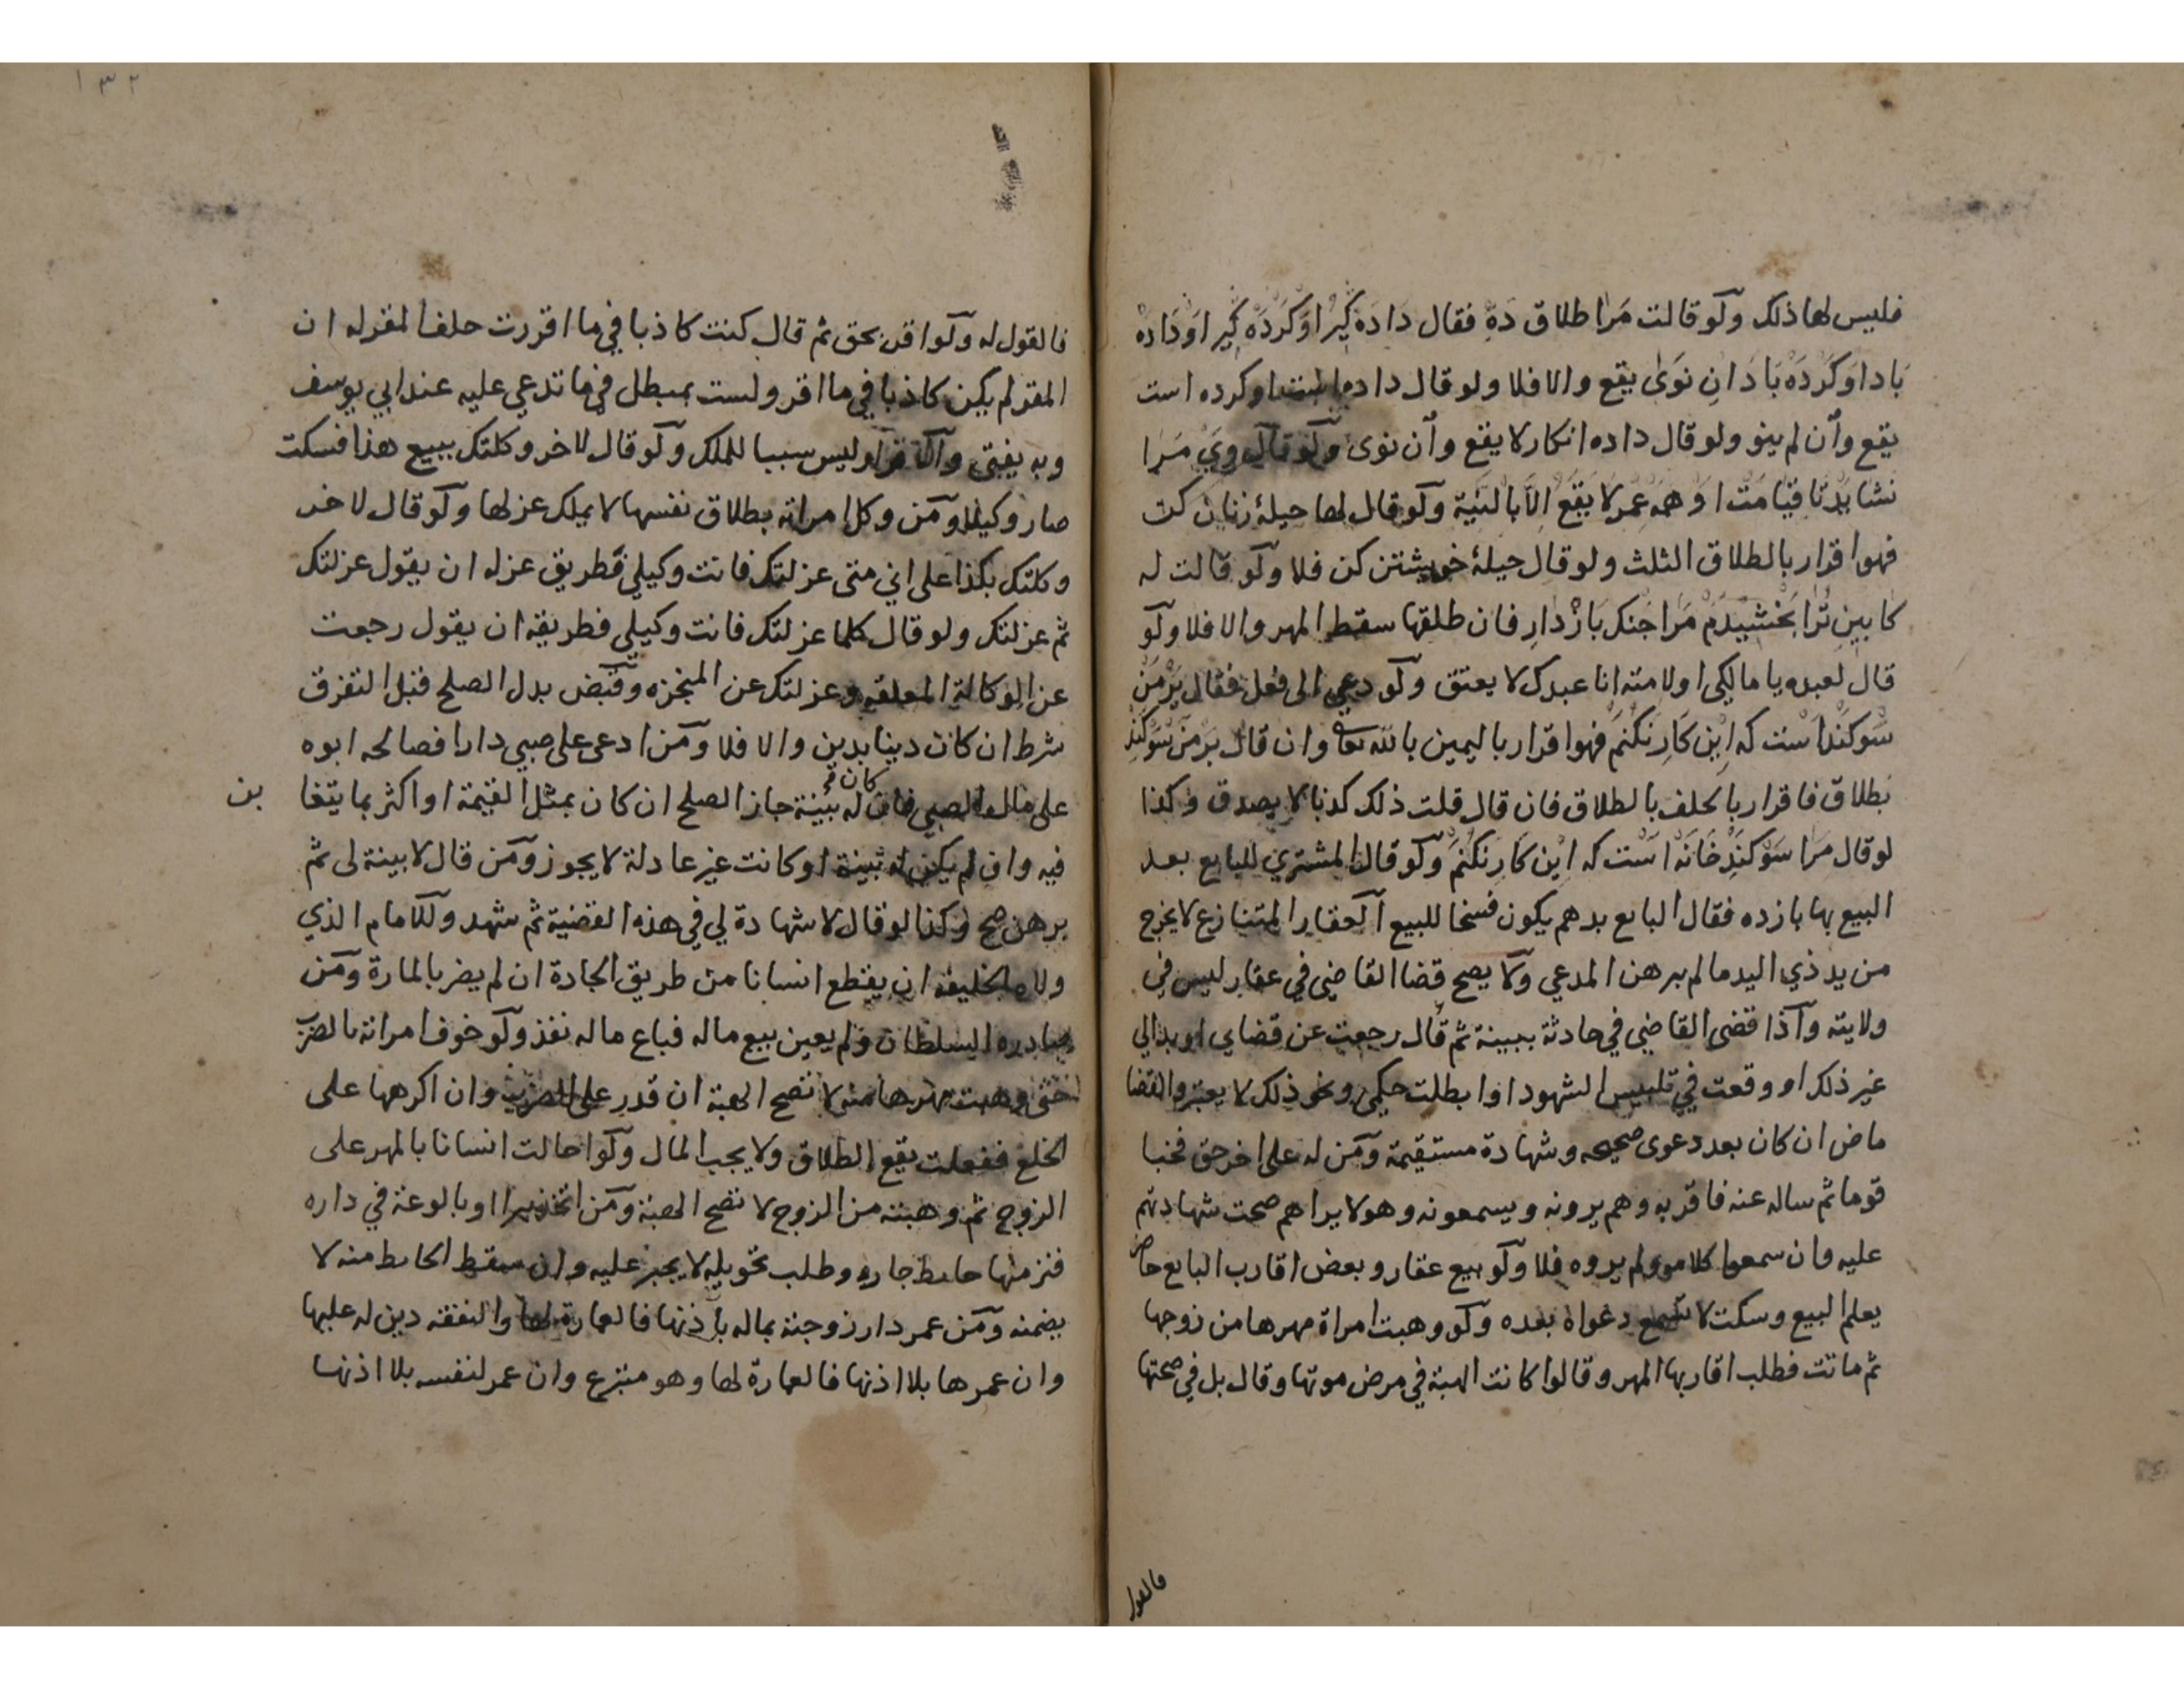 فليس لها ذلك ولو قالت مَرا طلاق دَهِ فقال دَادَه كَيِرْ اوَكَرْدَه كَيِر اوَدَادَه
بَاد اوَكَرَدَه بَادَ اِن نَوَىٰ يقع والا فلا ولو قال داده است او كرده است
يقع وان لم ينو ولو قال داده انكار لا يقع وان نوى ولو قال وَيْ مَرا
نشَايَدْ تَا قيَامَتْ اَوْ هَمَه عُمرْ لا يَقَعُ الاَّ بالنيَّة ولو قال لها حيلۀ زنان كن
فهو اقرار بالطلاق الثلث ولو قال حيلۀ خويشتن كن فلا ولو قالت له
كابين تُرا بَخْشِيدَمْ مَرا جنك بَازْدَارِ فان طلقها سقط المهر والا فلا ولو
قال لعبده يا مالكي او لامته انا عبدك لا يعتق ولو دعي الى فعل فقال بَرْ مَنْ
سَوكَنْد اَست كه اِيْن كَار نكُنَم فهو اقرار باليمين بالله تعالى وان قال بَرْ مَنْ سَوْكَنْدِ
بطلاق فاقرار بالحلف بالطلاق فان قال قلت ذلك كذبا لا يصدق وكذا
لو قال مرَا سَوْكَنْدِ خَانَه اَسْت كه اِيْن كَار نكُنَم ولو قال المشتري للبايع بعد
البيع بها بازده فقال البايع بدهم يكون فسخا للبيع العقار المتنازع لا يخرج
من يد ذي اليد ما لم يبرهن المدعي ولا يصح قضا القاضي في عقار ليس في
ولايته واذا قضى القاضي في حادثة ببينة ثم قال رجعت عن قضاي او بدا لي
غير ذلك او وقعت في تلبيس الشهود او ابطلت حكمي ونحو ذلك لا يعتبر والقضا
ماض ان كان بعد دعوى صحيحه وشهادة مستقيمة ومن له على اخر حق فخبا
قوما ثم ساله عنه فاقر به وهم يرونه ويسمعونه وهو لا يراهم صحت شهادتهم
عليه وان سمعوا كلامه ولم يروه فلا ولو بيع عقار وبعض اقارب البايع حاضر
يعلم البيع وسكت لا تسمع دعواه بعده ولو وهبت امراة مهرها من زوجها
ثم ماتت فطلب اقاربها المهر وقالوا كانت الهبة في مرض موتها وقال بل في صحتها
فالقول
١٣٢
فالقول له ولو اقر بحق ثم قال كنت كاذبا في ما اقررت حلف المقر له ان
المقر لم يكن كاذبا في ما اقر ولست بمبطل في ما تدعي عليه عند ابي يوسف
وبه يفتى والاقرار ليس سببا للملك ولو قال لاخر وكلتك ببيع هذا فسكت
صار وكيلا ومن وكل امراته بطلاق نفسها لا يملك عزلها ولو قال لاخر
وكلتك بكذا على اني متى عزلتك فانت وكيلي فطريق عزله ان يقول عزلتك
ثم عزلتك ولو قال كلما عزلتك فانت وكيلي فطريقه ان يقول رجعت
عن الوكالة المعلقه وعزلتك عن المنجزه وقبض بدل الصلح قبل التفرق
شرط ان كان دينا بدين والا فلا ومن ادعى على صبي دارا فصالحه ابوه
على مال الصبي فان كان له بينة جاز الصلح ان كان بمثل القيمة او اكثر بما يتغا بن
فيه وان لم يكن له بينة او كانت غير عادلة لا يجوز ومن قال لا بينة لي ثم
برهن صح وكذا لو قال لا شهادة لي في هذه القضية ثم شهد وللامام الذي
ولاه الخليفه ان يقطع انسانا من طريق الجادة ان لم يضر بالمارة ومن
صادره السلطان ولم يعين بيع ماله فباع ماله نفذ ولو خوف امراته بالضرب
حتى وهبت مهرها منه لا تصح الهبة ان قدر على الضرب وان اكرهها على
الخلع ففعلت يقع الطلاق ولا يجب المال ولو احالت انسانا بالمهر على
الزوج ثم وهبته من الزوج لا تصح الهبة ومن اتخذ بيرا او بالوعة في داره
فنز منها حايط جاره وطلب تحويله لا يجبر عليه وان سقط الحايط منه لا
يضمنه ومن عمر دار زوجته بماله باذنها فالعمارة لها والنفقه دين له عليها
وان عمرها بلا اذنها فالعمارة لها وهو متبرع وان عمر لنفسه بلا اذنها